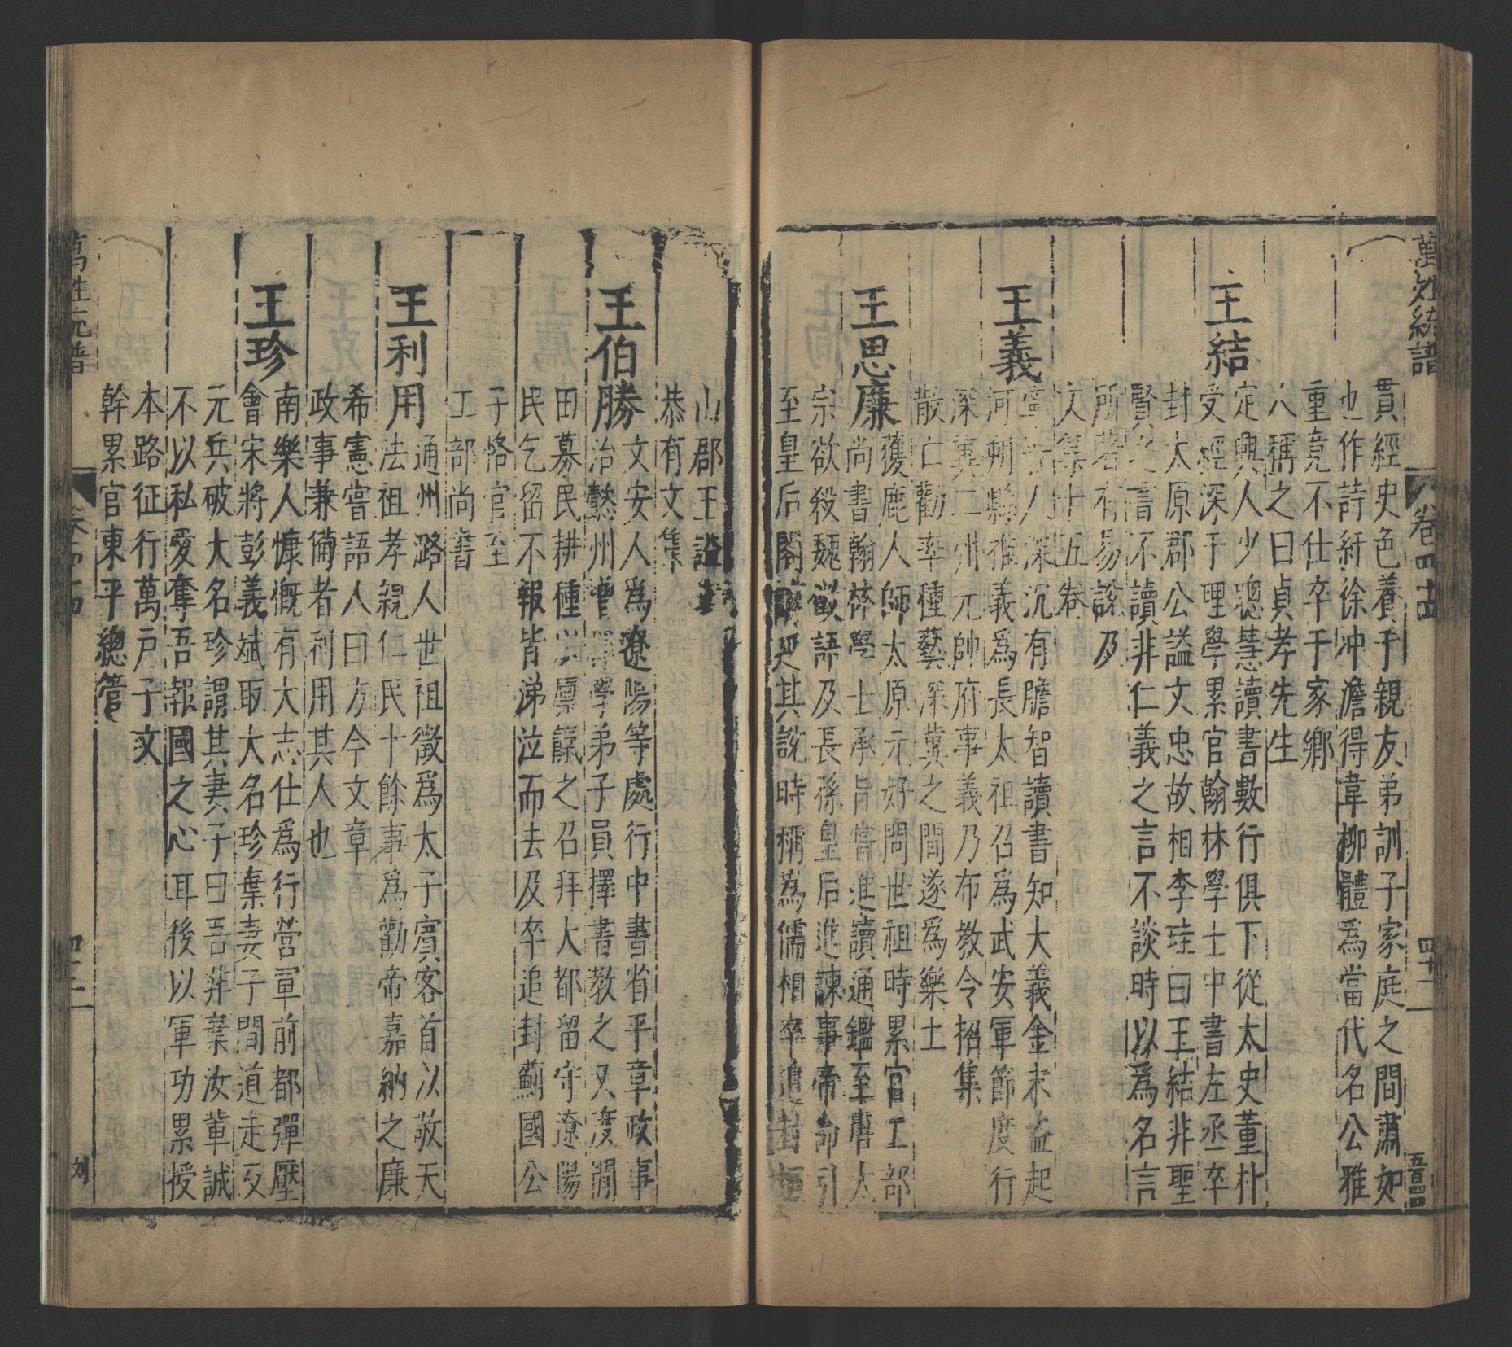 萬姓統譜
卷四十四
四十二
貫經史色養于親友弟訓子家庭之間肅如
也作詩紆徐冲澹得韋柳體爲當代名公雅
重竟不仕卒于家鄉
人稱之曰貞孝先生
王結
定興人少聰慧讀書數行俱下從太史董朴
受經深于理學累官翰林學士中書左丞卒
封太原郡公謚文忠故相李珪曰王結非聖
賢之言不讀非仁義之言不談時以爲名言
所著有易說及
文集十五卷
王義
寧晉人深沉有膽智讀書知大義金末益起
河朔縣推義爲長太祖召爲武安軍節度行
深冀二州元帥府事義乃布教令招集
散亡勸率種藝深冀之間遂爲樂土
王思廉
獲鹿人師太原元好問世祖時累官工部
尚書翰林學士承旨嘗進讀通鑑至唐太
宗欲殺魏徵語及長孫皇后進諫事帝命引
至皇后閣講 其說時稱爲儒相卒追封恒
山郡王謚文
恭有文集
王伯勝
文安人爲遼陽等處行中書省平章政事
治懿州 學弟子員擇書教之又度閒
田募民耕種以廩餼之召拜大都留守遼陽
民乞留不報皆涕泣而去及卒追封薊國公
子恪官至
工部尚書
王利用
通州潞人世祖徵爲太子賓客首以敬天
法祖孝親仁民十餘事爲勸帝嘉納之廉
希憲嘗語人曰方今文章
政事兼備者利用其人也
王珍
南樂人慷慨有大志仕爲行營軍前都彈壓
會宋將彭義斌取大名珍棄妻子間道走反
元兵破大名珍謂其妻子曰吾非棄汝輩誠
不以私愛奪吾報國之心耳後以軍功累授
本路征行萬戶子文
幹累官東平總管
萬姓統譜
卷四十四
四十二
刘